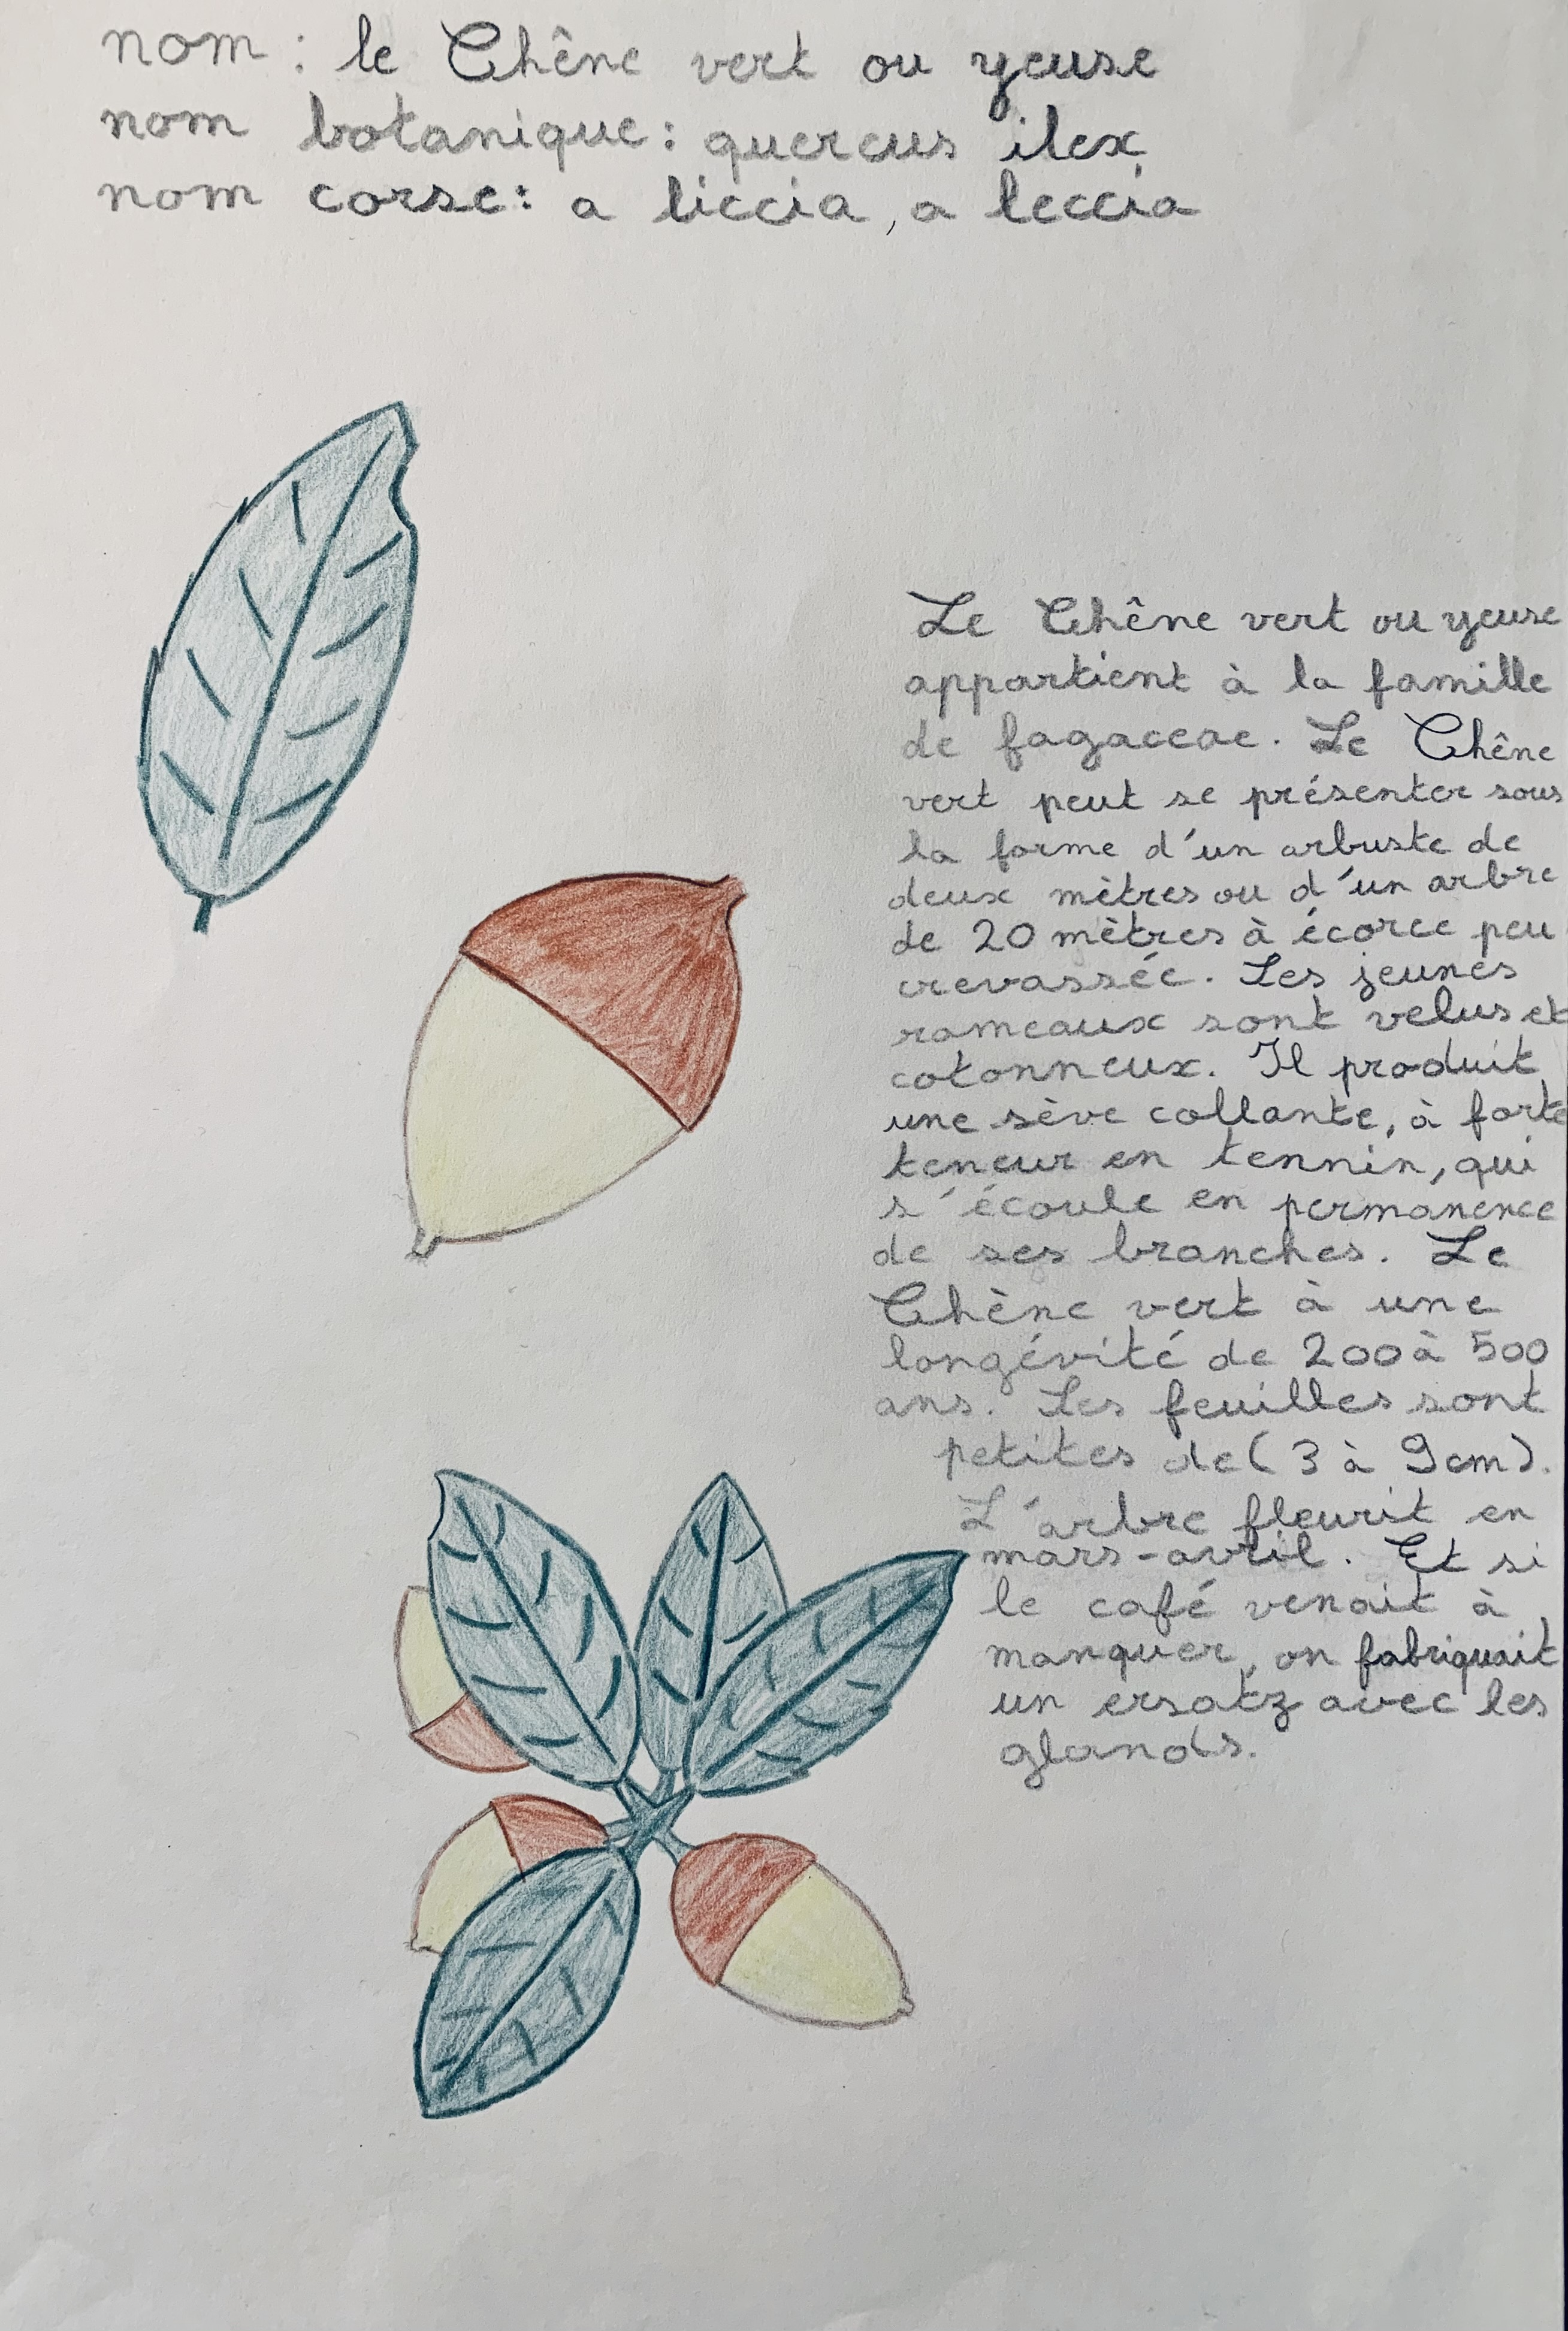 nom : le Chêne vert ou yeuse
nom botanique : quercus ilex
nom corse : a liccia, a leccia
Le Chêne vert ou yeuse
appartient à la famille
de fagaceae. Le Chêne
vert peut se présenter sous
la forme d'un arbuste de
deux mètres ou d'un arbre
de 20 mètres à écorce peu
crevassée. Les jeunes
rameaux sont velus et
cotonneux. Il produit
une sève collante, à forte
teneur en tennin, qui
s'écoule en permanence
de ses branches. Le
Chène vert à une
longévité de 200 à 500
ans. Les feuilles sont
petites de ( 3 à 9cm ).
L'arbre fleurit en
mars-avril. Et si
le café venait à
manquer, on fabriquait
un ersatz avec les
glands.